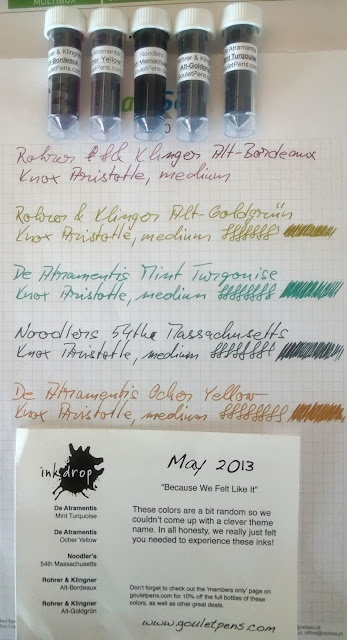 MULTIBOX
Rohrer & Klingner
Alt-Bordeaux
GouletPens.com
De Atramentis
Ocher Yellow
GouletPens.com
Noodlers
54th Massachusetts
GouletPens.com
Rohrer & Klingner
Alt-Goldgrün
GouletPens.com
De Atramentis
Mint Turquoise
GouletPens.com
Rohrer & Klinger Alt-Bordeaux
Knox Aristotle, medium
Rohrer & Klinger Alt-Goldgrün
Knox Aristotle, medium
De Atramentis Mint Turqouise
Knox Aristotle, medium
Noodlers 54the Massachusetts
Knox Aristotle, medium
De Atramentis Ocher Yellow
Knox Aristotle, medium
inkdrop
May 2013
"Because We Felt Like It"
De Atramentis
Mint Turquoise
De Atramentis
Ocher Yellow
Noodler's
54th Massachusetts
Rohrer & Klingner
Alt-Bordeaux
Rohrer & Klingner
Alt-Goldgrün
These colors are a bit random so we
couldn't come up with a clever theme
name. In all honesty, we really just felt
you needed to experience these inks!
Don't forget to check out the 'members only' page on
gouletpens.com for 10% off the full bottles of these
colors, as well as other great deals.
www.gouletpens.com